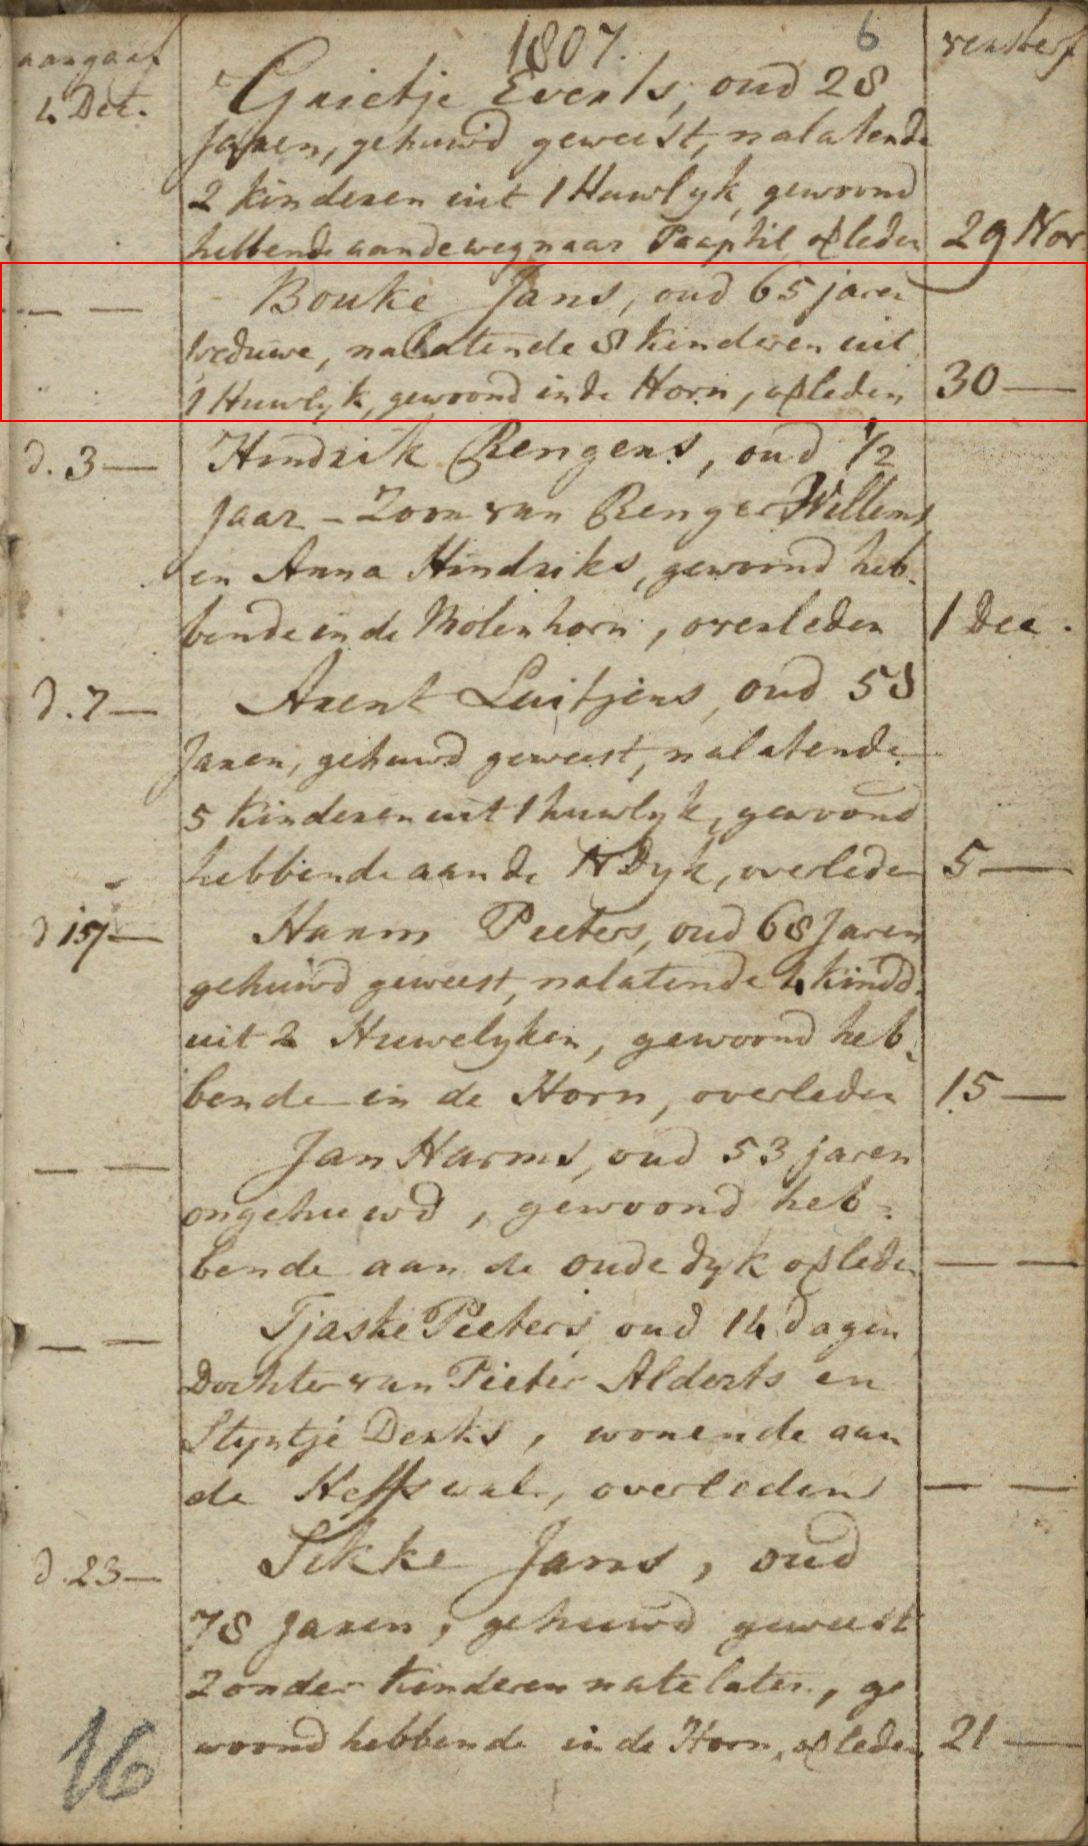 1807. 6
aangaaf versterf
4 Dec. Grietje Everts, oud 28
jaren, gehuwd geweest, nalatende
2 kinderen uit 1 Huwlyk, gewoond
hebbende aan de weg naar Paaptil, ovleden 29 Nov
— — Bouke Jans, oud 65 jaren
weduwe, nalatende 8 kinderen uit
1 Huwlyk, gewoond in de Horn, ovleden 30 —
d. 3 — Hindrik Rengers, oud 1/2
jaar - Zoon van Renger Willems
en Anna Hindriks, gewoond heb-
bende in de Molenhorn, overleden 1 Dec.
d. 7 — Arent Luitjens, oud 58
Jaren, gehuwd geweest, nalatende
5 Kinderen uit 1 huwlyk, gewoond
hebbende aan de Dyk, overleden 5 —
d 15 — Harm Pieters, oud 68 Jaren
gehuwd geweest, nalatende 4 kindd.
uit 2 Huwelyken, gewoond heb-
bende in de Horn, overleden 15 —
— — Jan Harms, oud 53 jaren
ongehuwd, gewoond heb-
bende aan de oude dyk ovleden — —
— — Tjaske Pieters, oud 14 dagen
Dochter van Pieter Alderts en
Styntje Derks, wonende aan
de Heffswal, overleden — —
d. 23 — Sikke Jans, oud
78 jaren, gehuwd geweest
zonder kinderen natelaten, ge
woond hebbende in de Horn, ovleden 21 —
16